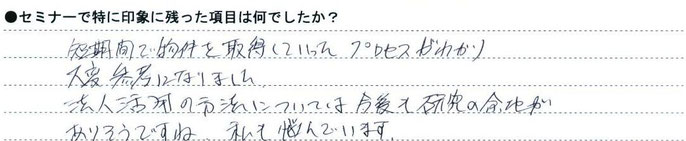 ●セミナーで特に印象に残った項目は何でしたか？
短期間で物件を取得していった プロセスがわかり
大変参考になりました。
法人活用の方法については今後も研究の余地が
ありそうですね、私も悩んでいます。